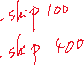 - ship 100
- ship 400